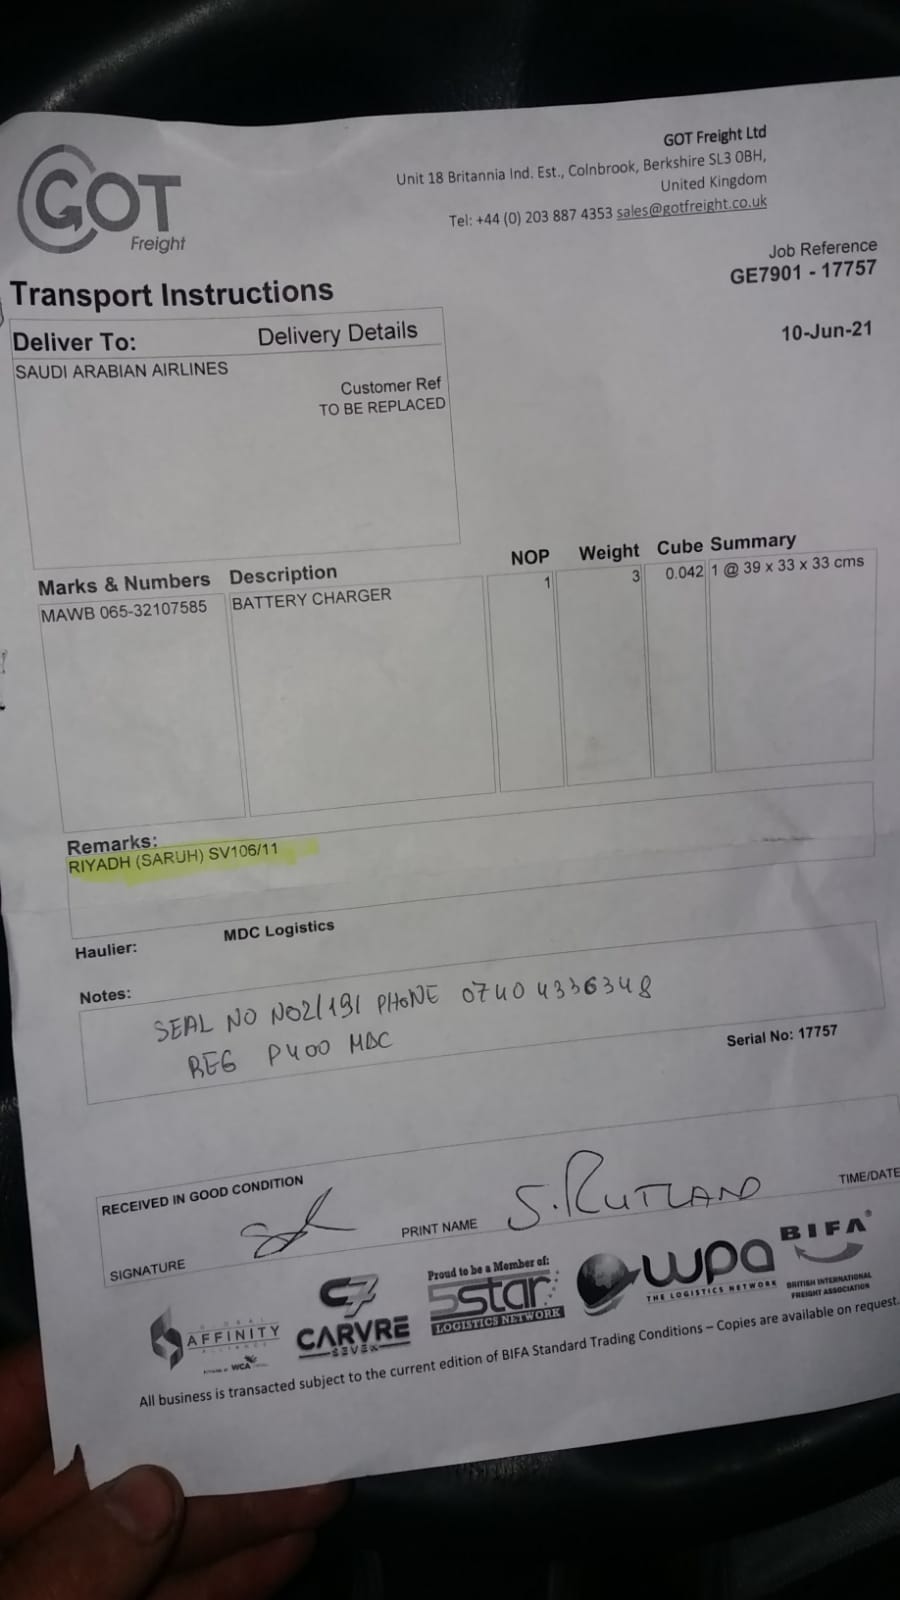 GOT
Freight
GOT Freight Ltd
Unit 18 Britannia Ind. Est., Colnbrook, Berkshire SL3 0BH,
United Kingdom
Tel: +44 (0) 203 887 4353 sales@gotfreight.co.uk
Job Reference
GE7901 - 17757
Transport Instructions
10-Jun-21
Deliver To: Delivery Details
SAUDI ARABIAN AIRLINES
Customer Ref
TO BE REPLACED
Marks & Numbers Description NOP Weight Cube Summary
MAWB 065-32107585 BATTERY CHARGER 1 3 0.042 1 @ 39 x 33 x 33 cms
Remarks:
RIYADH (SARUH) SV106/11
Haulier: MDC Logistics
Notes:
SEAL NO NO2/191 PHONE 0740 4336348
REG P400 MDC
Serial No: 17757
RECEIVED IN GOOD CONDITION
SIGNATURE PRINT NAME S. RUTLAND TIME/DATE
GLOBAL
AFFINITY
ALLIANCE
WCA
C7
CARVRE
SEVEN
Proud to be a Member of:
5star
LOGISTICS NETWORK
wpa
THE LOGISTICS NETWORK
BIFA
BRITISH INTERNATIONAL
FREIGHT ASSOCIATION
All business is transacted subject to the current edition of BIFA Standard Trading Conditions – Copies are available on request.